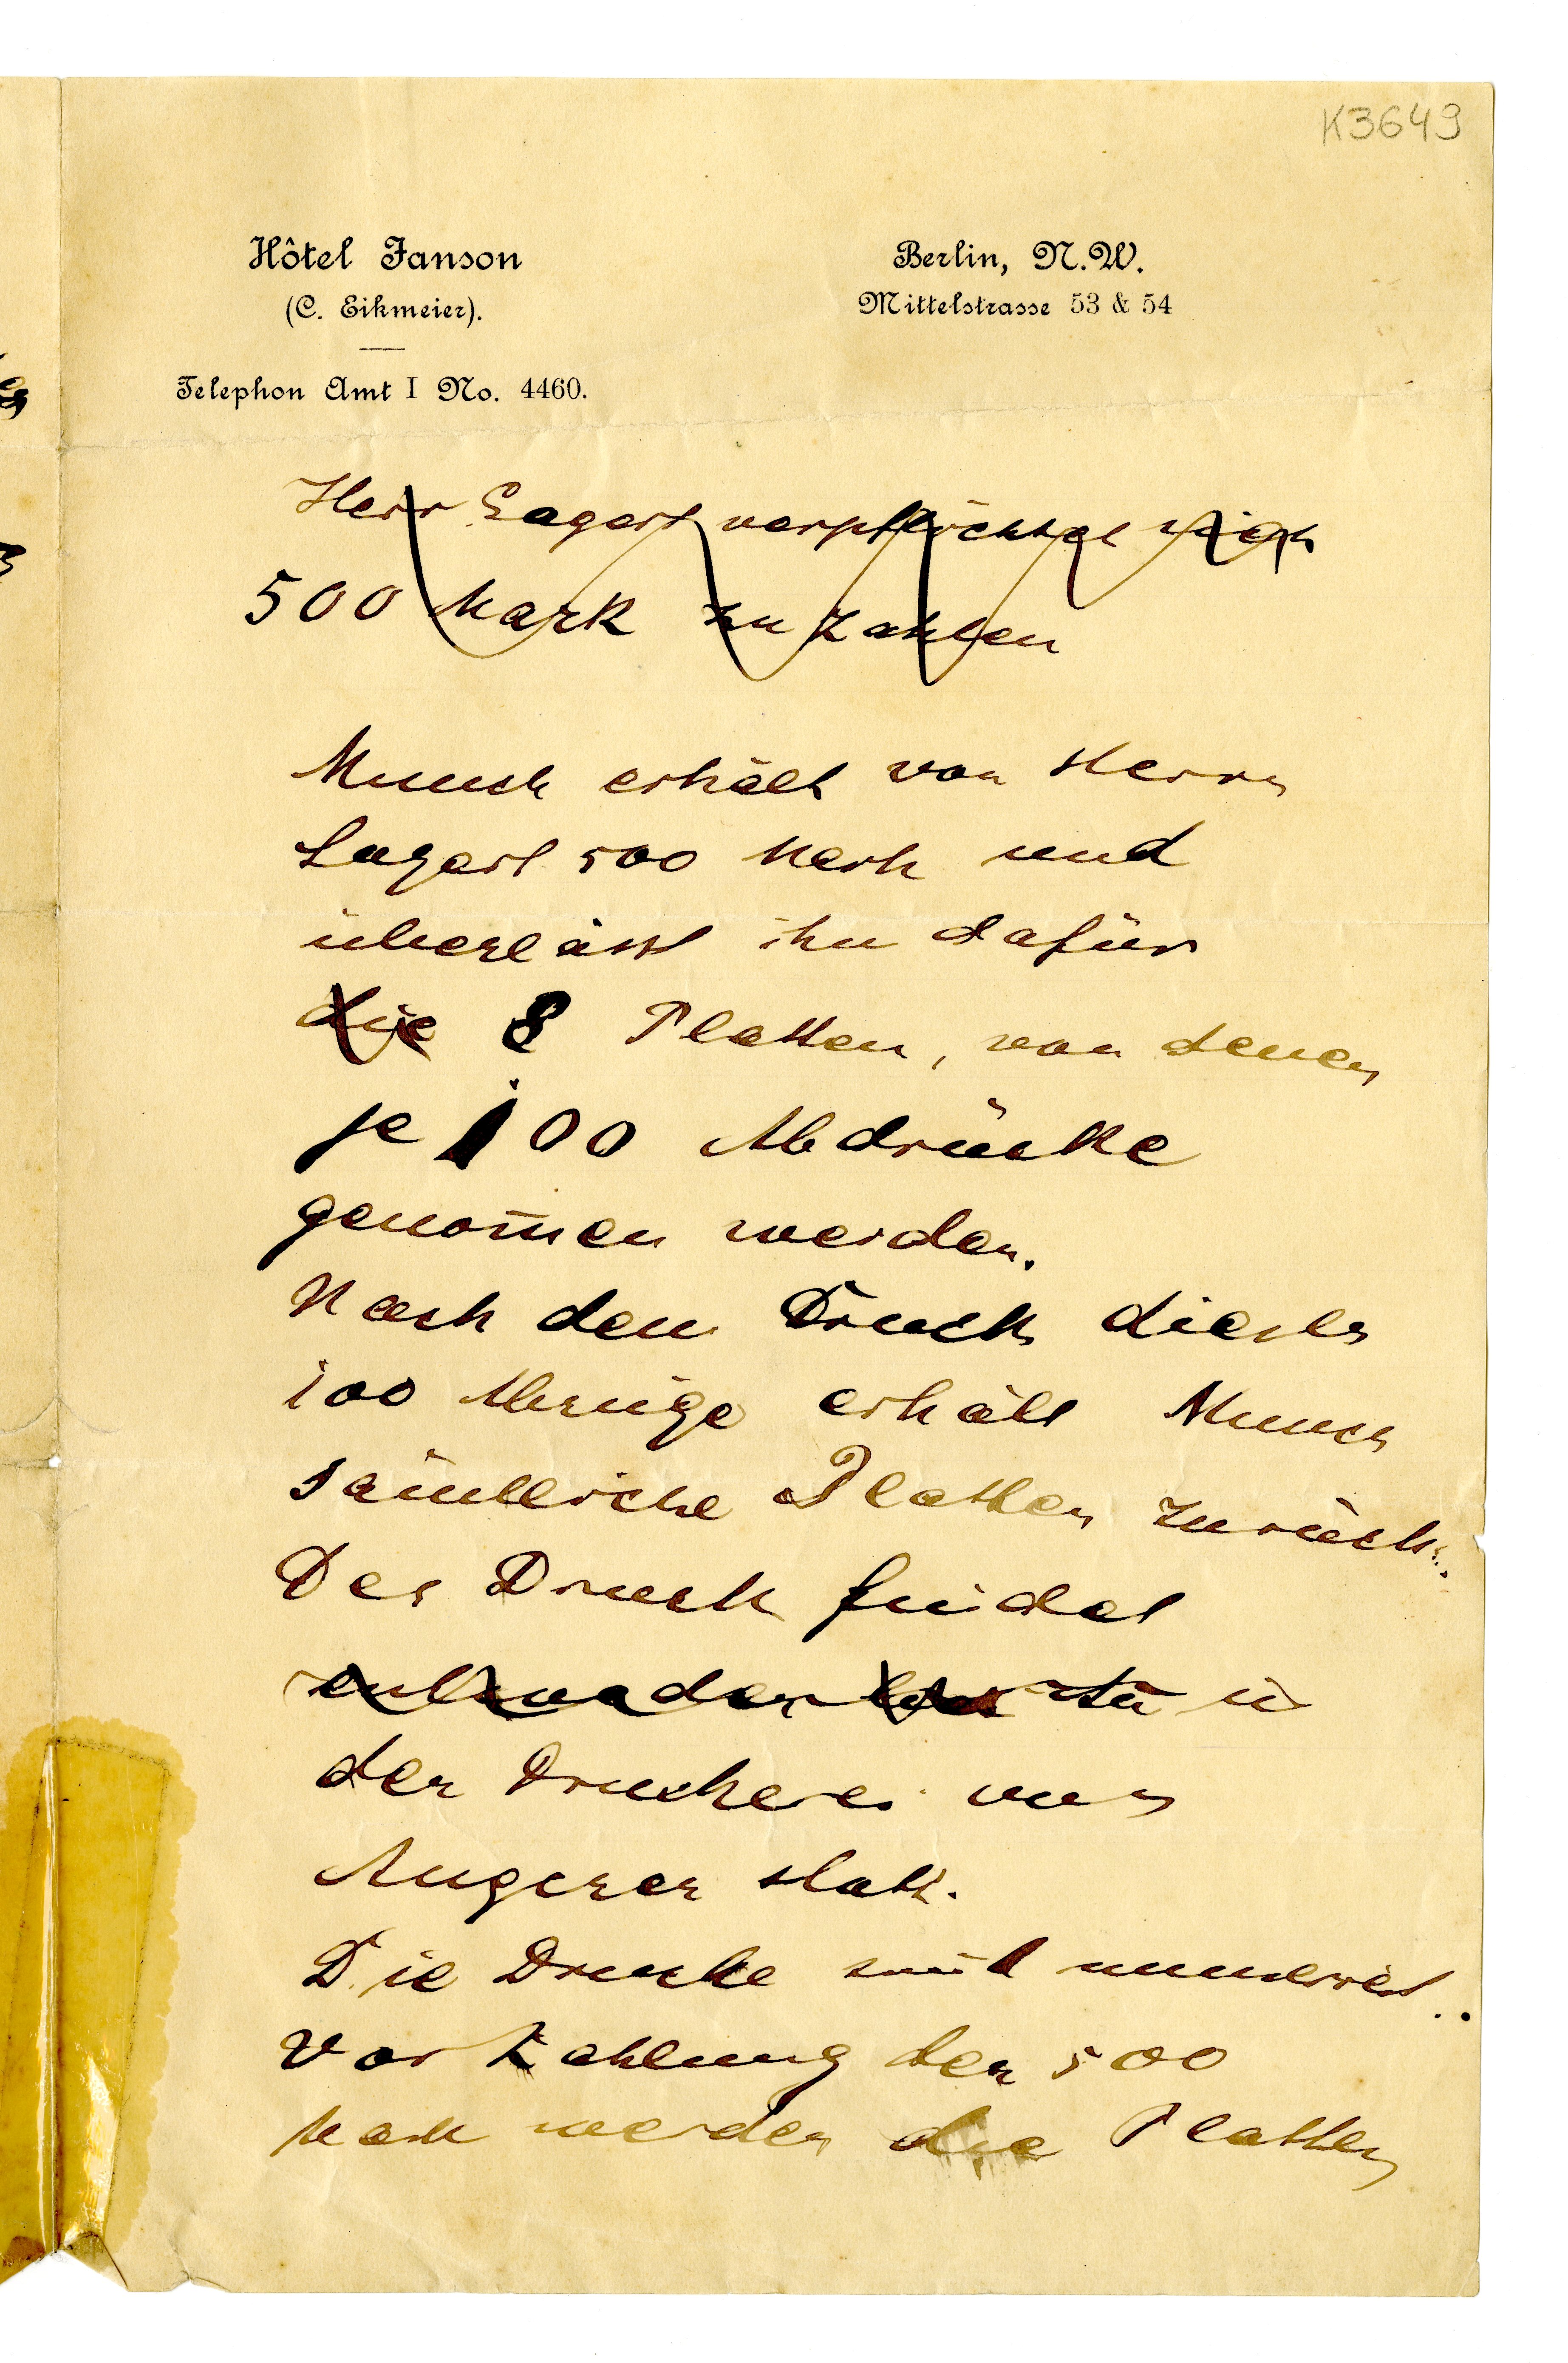 K3649
Hôtel Janson
(C. Eikmeier).
Telephon Amt I No. 4460.
Berlin, N.W.
Mittelstrasse 53 & 54
Herr Lagert verpflichtet sich
500 Mark zu zahlen
Munch erhält von Herrn
Lagert 500 Mark und
überlässt ihm dafür
die 8 Platten, von denen
je 100 Abdrücke
genom̄en werden.
Nach dem Druck dieser
100 Abzüge erhält Munch
säm̄tliche Platten zurück.
Der Druck findet
entweder in
der Druckerei von
Angerer statt.
Die Drucke sind numeriert.
Vor Zahlung der 500
Mark werden die Platten